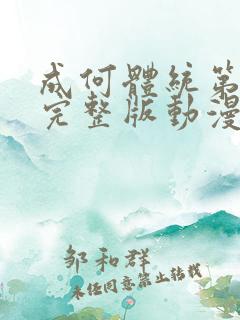 成何體統第
完整版動漫
邹和群
未经同意禁止转载